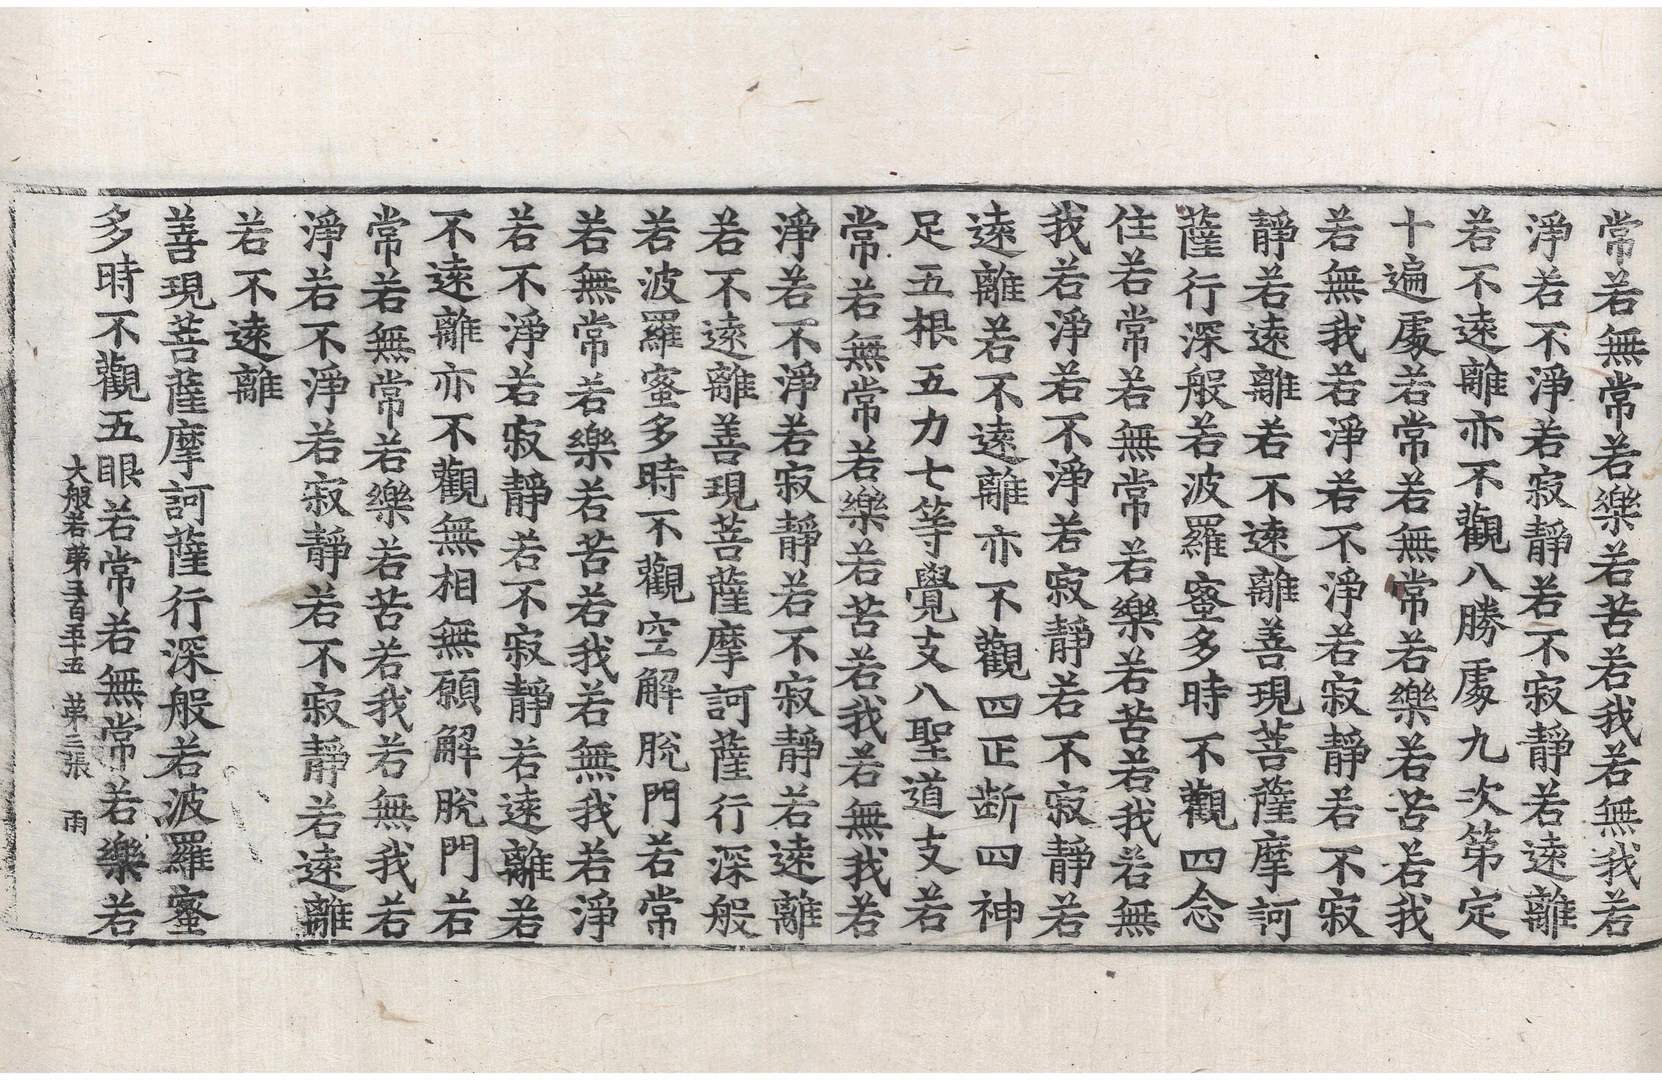 常若無常若樂若苦若我若無我若
淨若不淨若寂靜若不寂靜若遠離
若不遠離亦不觀八勝處九次第定
十遍處若常若無常若樂若苦若我
若無我若淨若不淨若寂靜若不寂
靜若遠離若不遠離善現菩薩摩訶
薩行深般若波羅蜜多時不觀四念
住若常若無常若樂若苦若我若無
我若淨若不淨若寂靜若不寂靜若
遠離若不遠離亦不觀四正断四神
足五根五力七等覺支八聖道支若
常若無常若樂若苦若我若無我若
淨若不淨若寂靜若不寂靜若遠離
若不遠離善現菩薩摩訶薩行深般
若波羅蜜多時不觀空解脫門若常
若無常若樂若苦若我若無我若淨
若不淨若寂靜若不寂靜若遠離若
不遠離亦不觀無相無願解脫門若
常若無常若樂若苦若我若無我若
淨若不淨若寂靜若不寂靜若遠離
若不遠離
善現菩薩摩訶薩行深般若波羅蜜
多時不觀五眼若常若無常若樂若
大般若第三百五十五 第三張 雨